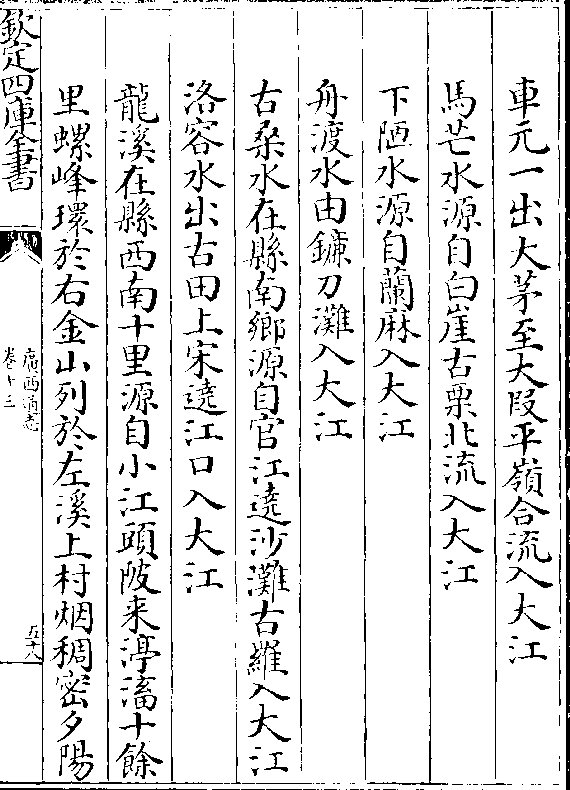 車元一出大茅至大段平嶺合流入大江
馬芒水源自白崖古栗北流入大江
下陋水源自蘭麻入大江
舟渡水由鐮刀灘入大江
古桑水在縣南鄉源自官江遶沙灘古羅入大江
洛容水出古田上宋遶江口入大江
龍溪在縣西南十里源自小江頭陂来渟滀十餘
里螺峰環於右金山列於左溪上村烟稠密夕陽
欽定四庫全書
廣西通志
卷十三
五十八